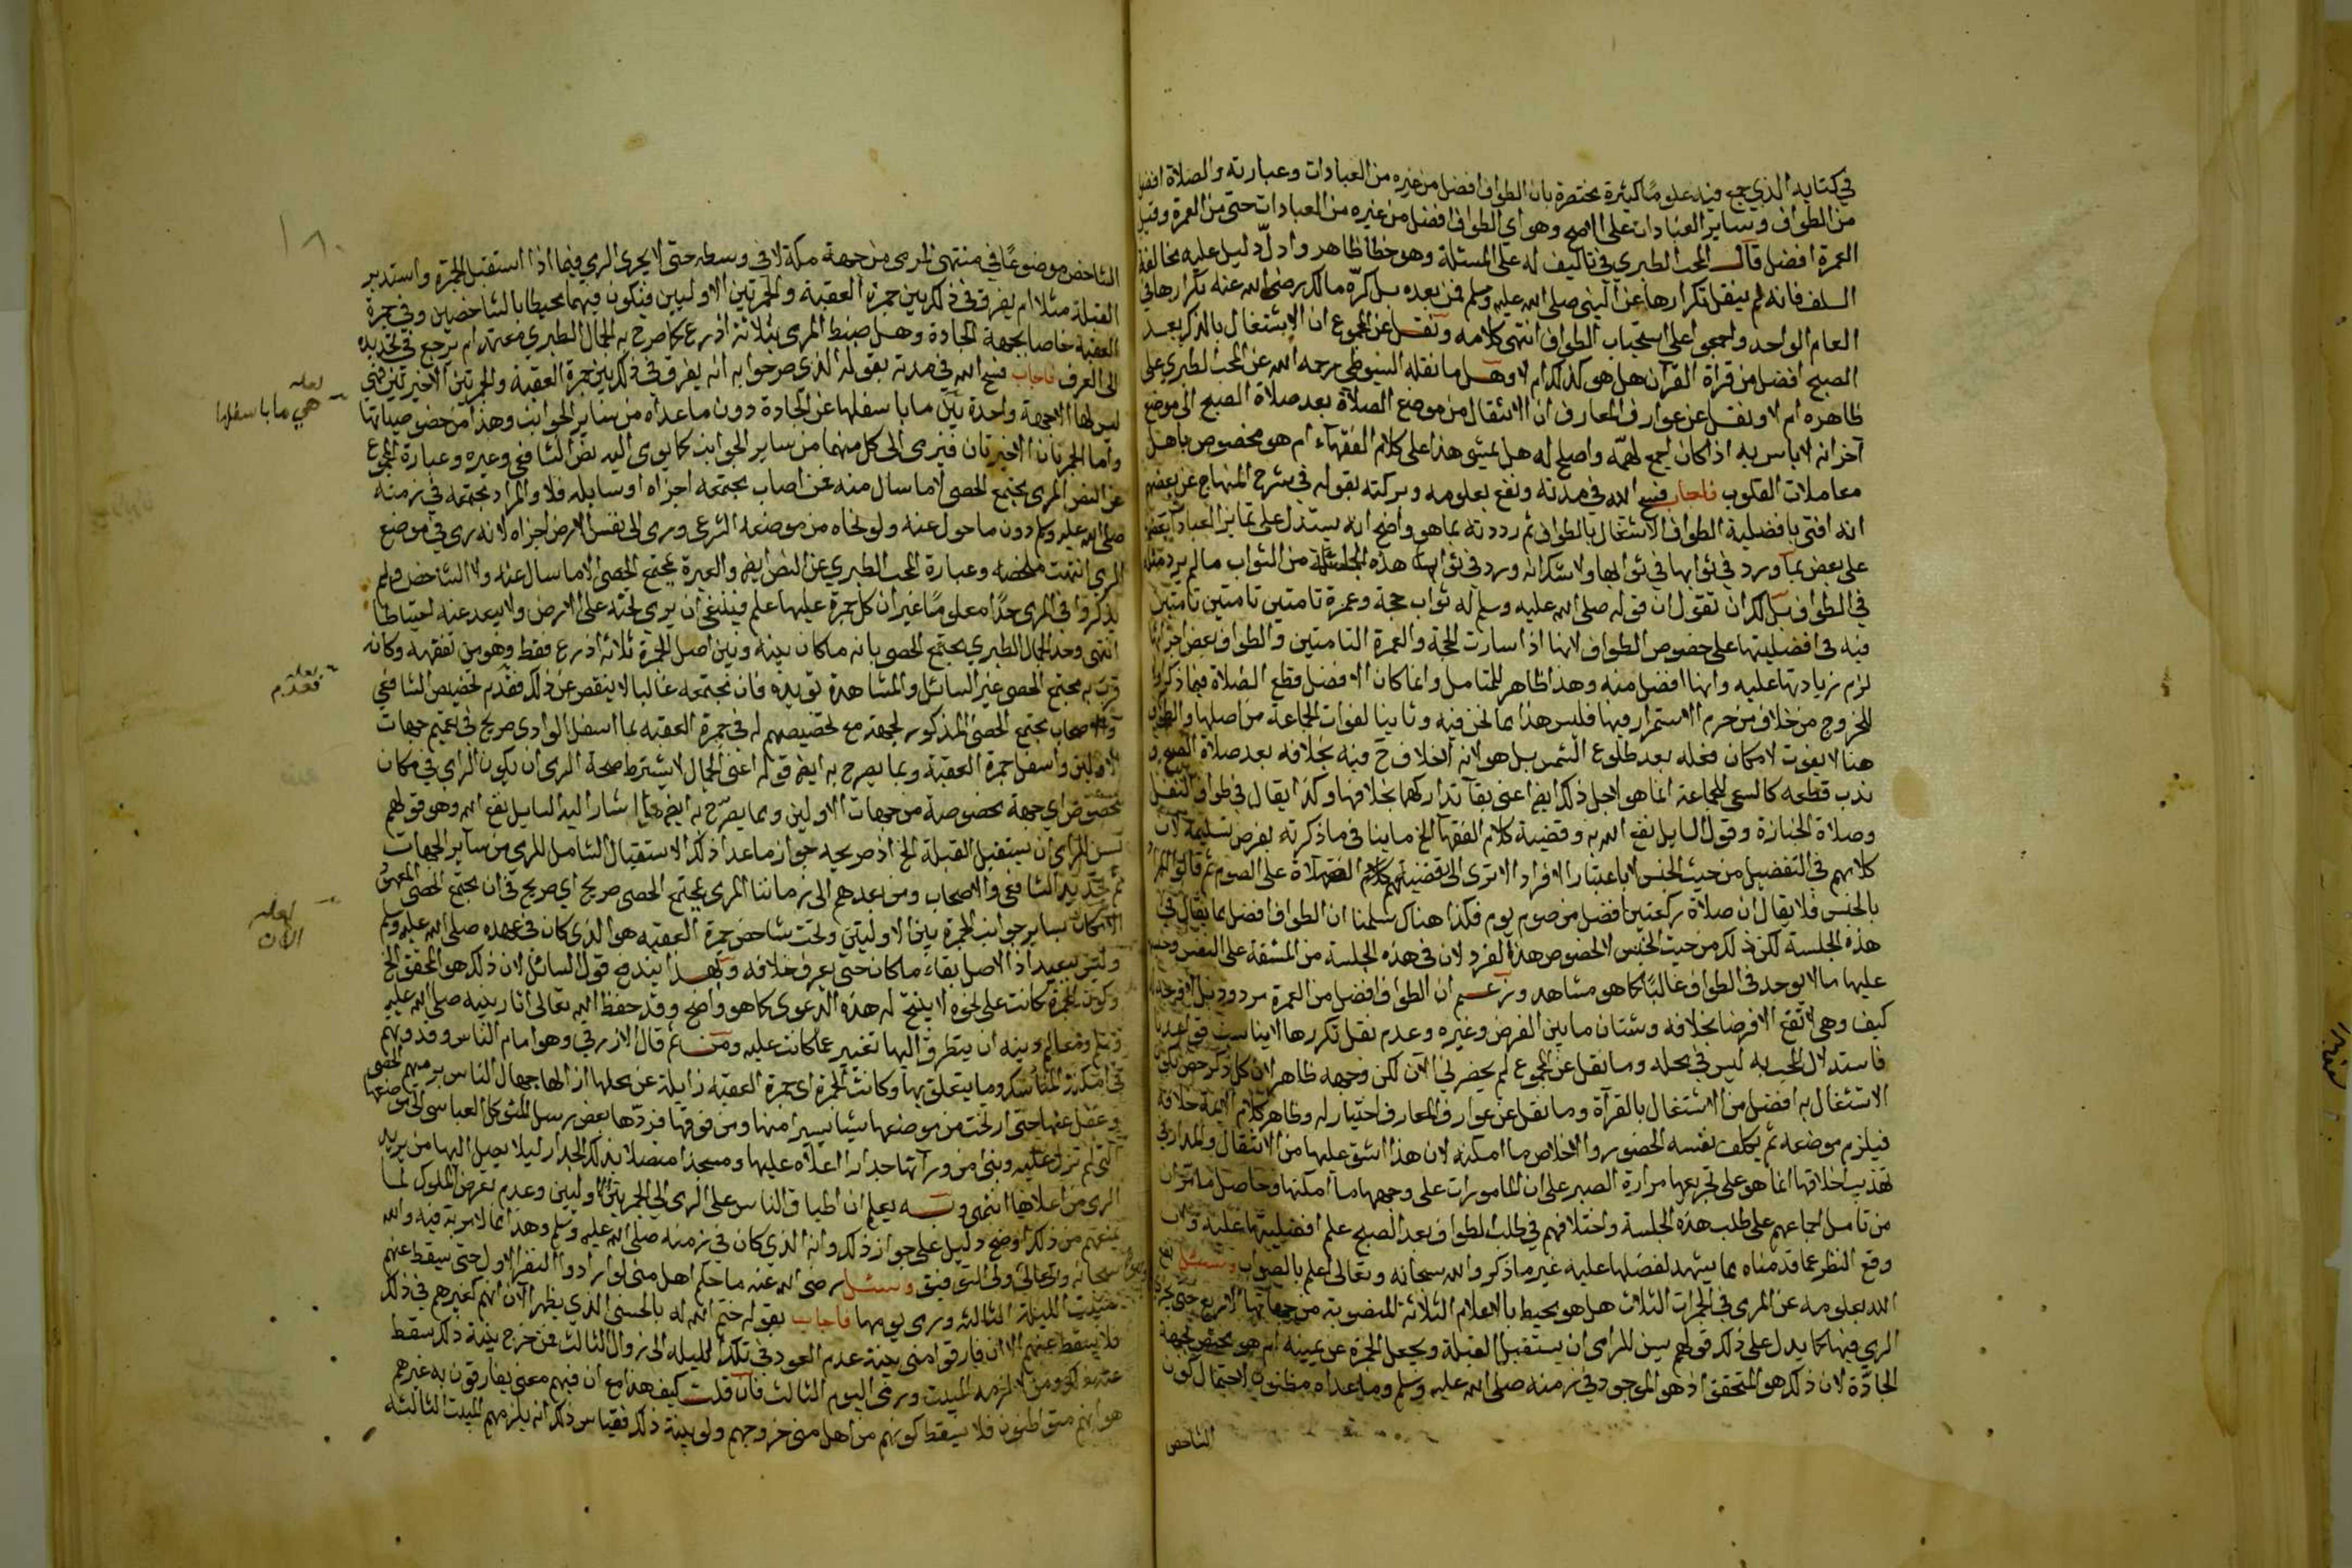 في كتابه الذي جمع فيه علوما كثيرة مختصرة بان الطواف افضل من غيره من العبادات وعبارته والصلاة افضل
من الطواف وساير العبادات على الاصح وهو اي الطواف افضل من غيره من العبادات حتى من العمرة وقيل
العمرة افضل قال المحب الطبري في تاليف له على المسئلة وهو خطا ظاهر وادل دليل عليه مخالفة
السلف فانه لم ينقل تكرارها عن النبي صلى الله عليه وسلم فمن بعده بل كره مالك رضي الله عنه تكرارها في
العام الواحد واجمعوا على استحباب الطواف انتهى كلامه ونقل عن المجموع ان الاشتغال بالذكر بعد
الصبح افضل من قراة القرآن هل هو كذلك ام لا وهل ما نقله السيوطي رحمه الله عن المحب الطبري على
ظاهره ام لا ونقل عن عوارف المعارف ان الانتقال من موضع الصلاة بعد صلاة الصبح الى موضع
آخر انه لا باس به اذا كان اجمع لهمه واصلح له هل يمشي هذا على كلام الفقهاء ام هو مخصوص باهل
معاملات القلوب فاجاب فسح الله في مدته ونفع بعلومه وبركته بقوله في شرح المنهاج عن بعضهم
انه افتى بافضلية الطواف الاشتغال بالطواف ثم رددته بما هو واضح انه يستدل على تمايز العبادات بعضها
على بعض بما ورد في ثوابها ولا شك انه ورد في ثواب هذه الجلسة من الثواب ما لم يرد مثله
في الطواف بل لك ان تقول ان قوله صلى الله عليه وسلم له ثواب حجة وعمرة تامتين تامتين تامتين
فيه في افضليتها على خصوص الطواف لانها اذا سارت الحجة والعمرة التامتين والطواف بعض اجزائها
لزم زيادتها عليه وانها افضل منه وهذا ظاهر للمتامل وانما كان الافضل قطع الصلاة فيما ذكروا
للخروج من خلاف من حرم الاستمرار فيها فليس هذا مما نحن فيه وثانيا لفوات الجماعة من اصلها والطواف
هنا لا يفوت لامكان فعله بعد طلوع الشمس بل هو لانه الخلاف ح فيه بخلافه بعد صلاة الصبح و
ندب قطعه كالسعي للجماعة انما هو لاجل ذلك ايضا اعني بقا تداركهما بخلافها وكذا يقال في طواف النفل
وصلاة الجنازة وقول السايل نفع الله به وقضية كلام الفقها الخ ما ينافي ما ذكرته بفرض تسليمه لان
كلامهم في التفضيل من حيث الجنس لا باعتبار الافراد الا ترى الى تفضيلهم الصلاة على الصوم ثم قالوا المراد
بالجنس فلا يقال ان صلاة ركعتين افضل من صوم يوم فكذا هنا لو سلمنا ان الطواف افضل مما يقال في
هذه الجلسة لكن ذلك من حيث الجنس لا لخصوص هذا الفرد لان في هذه الجلسة من المشقة على النفس
عليها ما لا يوجد في الطواف غالبا كما هو مشاهد وزعم ان الطواف افضل من العمرة مردود
كيف وهي لا تقع الا فرضا بخلافه وشتان ما بين الفرض وغيره وعدم نقل تكررها لا يناسب
فاستدلال المحب به ليس في محله وما نقل عن المجموع لم يحضرني الآن لكن وجهه ظاهر
الاشتغال به افضل من الاشتغال بالقرآة وما نقل عن عوارف المعارف اختيار له وظاهر كلام الايمة خلافه
فيلزم موضعه ثم يكلف نفسه الحضور والاخلاص ما امكنه لان هذا اشق عليها من الانتقال والمدار في
تهذيب اخلاقها انما هو على تجريعها مرارة الصبر على ان المامورات على وجهها ما امكنها
من تامل اجماعهم على طلب هذه الجلسة واختلافهم في طلب الطواف بعد الصبح علم افضليتها عليه
وقع النظر عما قدمناه مما يشهد لفضلها عليه غير ما ذكر والله سبحانه وتعالى اعلم بالصواب وسئل نفع
الله بعلومه عن المرمى في الجمرات الثلاث هل هو محيط بالاعلام الثلاثة المنصوبة من جهاتها الاربع حتى يجزي
الرمي فيها كما يدل على ذلك قولهم يسن للرامي ان يستقبل القبلة ويجعل الجمرة عن يمينه ام هو مختص بجهة
الجادة لان ذلك هو المتحقق اذ هو الموجود في زمنه صلى الله عليه وسلم وما عداه مظنون لاحتمال كون
الشاخص
١٨٠
الشاخص موضوعا في منتهى المرمى من جهة مكة لا في وسطه حتى لا يجزي الرمي فيما اذا استقبل الجمرة واستدبر
القبلة مثلا ام يفرق في ذلك بين جمرة العقبة والجمرتين الاوليين فيكون فيهما محيطا بالشاخصين وفي جمرة
العقبة خاصا بجهة الجادة وهل ضبط المرمى بثلاثة اذرع كما صرح به الجمال الطبري معتمد ام يرجع في تحديده
الى العرف فاجاب فسح الله في مدته بقوله الذي صرحوا به انه يفرق في ذلك بين جمرة العقبة والجمرتين الاخيرتين فهي
ليس لها الا جهة واحدة بين ما باسفلها عن الجادة دون ما عداه من ساير الجوانب وهذا من خصوصياتها
لعله
هي ما باسفلها
واما الجمرتان الاخيرتان فيرمى الى كل منهما من ساير الجوانب كما يومى اليه نص الشافعي وغيره وعبارة المجموع
عن النص المرمى مجتمع الحصى لا ما سال منه فمن اصاب مجتمعه اجزاه او سايله فلا والمراد مجتمعه في زمنه
صلى الله عليه وسلم دون ما حول عنه ولو نحاه من موضعه الشرعي ورمى الى نفس الارض اجزاه لانه رمى في موضع
الرمي انتهت ملخصة وعبارة المحب الطبري عن النص ايضا والعبرة بمجتمع الحصى لا ما سال عنه ولا الشاخص ولم
يذكروا في المرمى حدا معلوما غير ان كل جمرة عليها علم فينبغي ان يرمي تحته على الارض ولا يبعد عنه احتياطا
انتهى وحد الجمال الطبري مجتمع الحصى بانه ما كان بينه وبين اصل الجمرة ثلاثة اذرع فقط وهو من تفقهه وكانه
قرب به مجتمع الحصى غير السائل والمشاهدة تؤيده فان مجتمعه غالبا لا ينقص عن ذلك فقدم تخصيص الشافعي
لعله
فعدم
والاصحاب مجتمع الحصى المذكور لجهة مع تخصيصهم له في جمرة العقبه بما اسفل الوادي صريح في تعميم جهات
الاوليين واسفل جمرة العقبة ومما يصرح به ايضا قوله اعني الجمال لا يشترط صحة الرمي ان يكون الرامي في مكان
مخصوص اي جهة مخصوصة من جهات الاوليين ومما يصرح به ايضا ما اشار اليه السايل نفع الله وهو قولهم
يسن للرامي ان يستقبل القبلة الخ اذ صريحه جواز ما عدا ذلك الاستقبال الشامل للرمي من سائر الجهات
ثم تحديد الشافعي والاصحاب ومن بعدهم الى زماننا المرمى بمجتمع الحصى صريح اي صريح في ان مجتمع الحصى المعهود
بساير جوانب الجمرتين الاوليتين وتحت شاخص جمرة العقبه هو الذي كان في عهده صلى الله عليه وسلم
لعله
الان
وليس ببعيد اذ الاصل بقاء ما كان حتى يعرف خلافه وبهذا يندفع قول السائل لان ذلك هو المحقق الخ
وكون الجمرة كانت على نحوه لا ينتج له هذه الدعوى كما هو واضح وقد حفظ الله تعالى اثار نبيه صلى الله عليه
وسلم ومعالم دينه ان يتطرق اليها تغيير عما كانت عليه ومن ثم قال الازرقي وهو امام الناس وقدوتهم
في امكنة المناسك وما يتعلق بها وكانت الجمرة اي جمرة العقبه زايلة عن محلها ازالها جهال الناس برميهم الحصى
وغفل عنها حتى ازلت من موضعها شيئا يسيرا منها ومن فوقها فردها بعض رسل المتوكل العباسي الى موضعها
التي لم تزل عليه وبنى من ورآئها جدارا اعلاه عليها ومسجدا متصلا بذلك الجدار ليلا يصل اليها من يريد
الرمي من اعلاها انتهى وبه يعلم ان اطباق الناس على الرمي الى الجمرتين الاوليين وعدم تعرض الملوك لما
يمنعهم من ذلك اوضح دليل على جواز ذلك وانه الذي كان في زمنه صلى الله عليه وسلم وهذا مما لا مرية فيه والله
سبحانه وتعالى ولي التوفيق وسئل رضي الله عنه ما حكم اهل منى لو ارادوا النفر الاول حتى سقط عنهم
مبيت الليلة الثالثه ورمي يومها فاجاب بقوله ختم الله له بالحسنى الذي يظهر الآن انهم كغيرهم في ذلك
فلا يسقط عنهم الا ان فارقوا منى بنية عدم العود في تلك الليله الى زوال الثالث فمن خرج بنية ذلك سقط
عنه ذلك ومن لا لزمه المبيت ورمي اليوم الثالث فان قلت كيف هذا مع ان فيهم معنى يفارقون به غيرهم
هو انهم متوطنون فلا يسقط كونهم من اهل منى خروجهم ولو بنية ذلك فقياس ذلك انه يلزمهم المبيت الثالثه